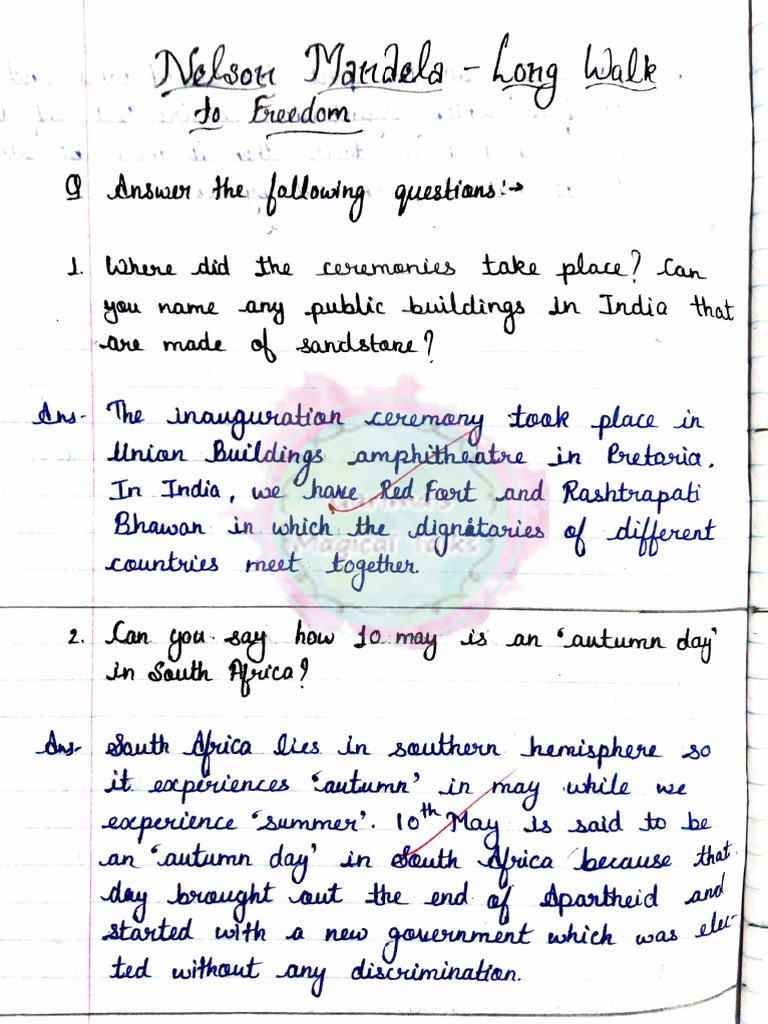 Nelson Mandela - Long Walk
to Freedom
Q Answer the following questions:→
1. Where did the ceremonies take place? Can
you name any public buildings in India that
are made of sandstone?
Ans- The inauguration ceremony took place in
Union Buildings amphitheatre in Pretoria.
In India, we have Red Fort and Rashtrapati
Bhawan in which the dignitaries of different
countries meet together.
Magical Talks
2. Can you say how 10 may is an 'autumn day'
in South Africa?
Ans- South Africa lies in southern hemisphere so
it experiences 'autumn' in may while we
experience 'summer'. 10th May is said to be
an 'autumn day' in South Africa because that
day brought out the end of Apartheid and
started with a new government which was elec-
ted without any discrimination.